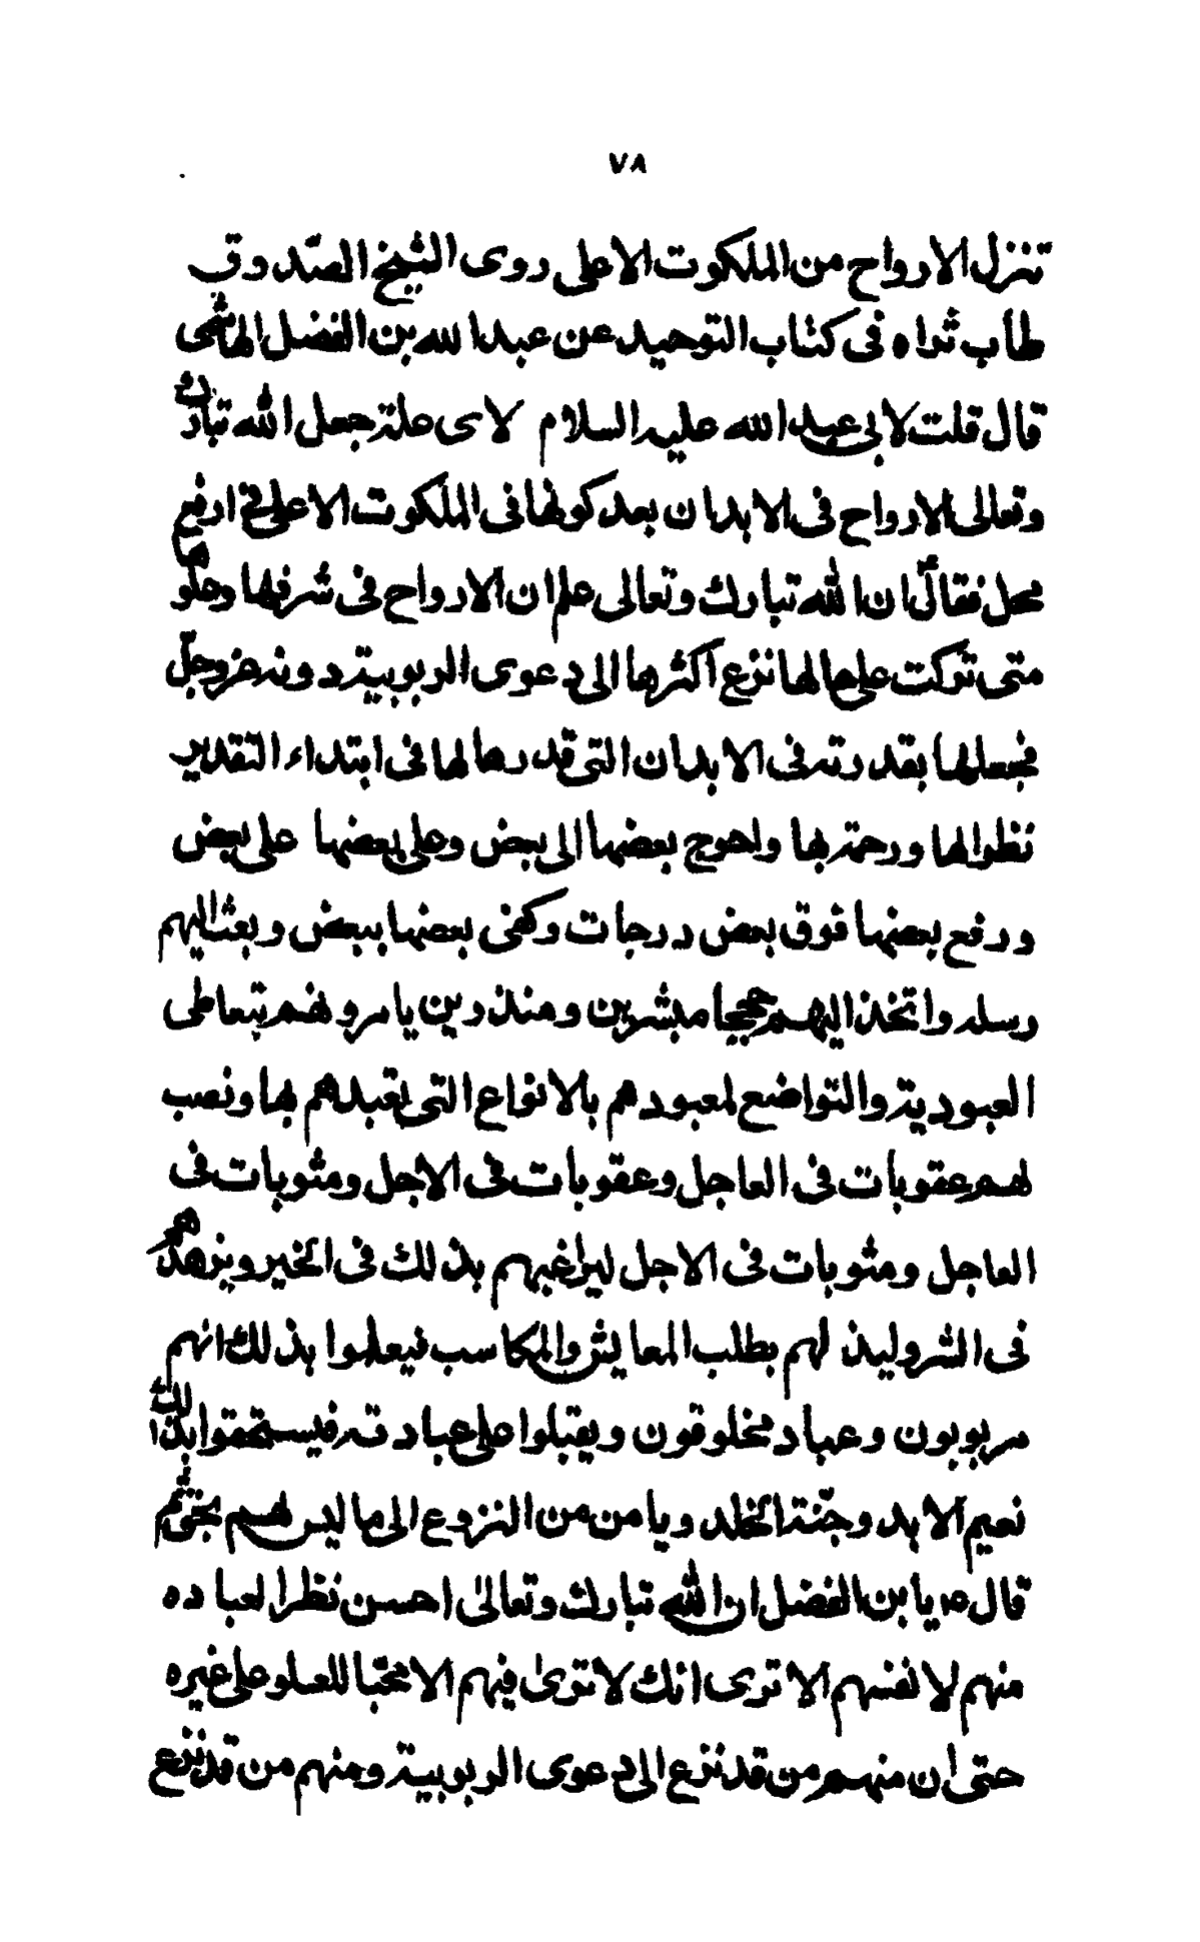 ٧٨
تنزل الارواح من الملكوت الاعلى روى الشيخ الصّدوق
طاب ثراه فى كتاب التوحيد عن عبد الله بن الفضل الهاشمى
قال قلت لابى عبد الله عليه السلام لاى علة جعل الله تبارك
وتعالى الارواح فى الابدان بعد كونها فى الملكوت الاعلى فى ارفع
محل فقال ان الله تبارك وتعالى علم ان الارواح فى شرفها وعلوها
متى تركت على حالها نزع اكثرها الى دعوى الربوبية دونه عزوجلّ
فجعلها بقدرته فى الابدان التى قدرها لها فى ابتداء التقدير
نظرا لها ورحمة بها واحوج بعضها الى بعض وعلى بعضها على بعض
ورفع بعضها فوق بعض درجات وكفى بعضها ببعض وبعث اليهم
رسله واتخذ اليهم حججا مبشرين ومنذرين يامرونهم بتعاطى
العبودية والتواضع لمعبودهم بالانواع التى تعبدهم بها ونصب
لهم عقوبات فى العاجل وعقوبات فى الاجل ومثوبات فى
العاجل ومثوبات فى الاجل ليراغبهم بذلك فى الخير ويزهدهم
فى الشر وليذ لهم بطلب المعايش والمكاسب فيعلموا بذلك انهم
مربوبون وعباد مخلوقون ويقبلوا على عبادته فيستحقوا بذلك
نعيم الابد وجنّة الخلد ويامن من النزوع الى ما ليس لهم بحق ثم
قال ع يا بن الفضل ان الله تبارك وتعالىٰ احسن نظرا لعباده
منهم لانفسهم الا ترى انك لا ترىٰ فيهم الا محبّا للعلو على غيره
حتى ان منهم من قد نزع الى دعوى الربوبية ومنهم من قد نزع